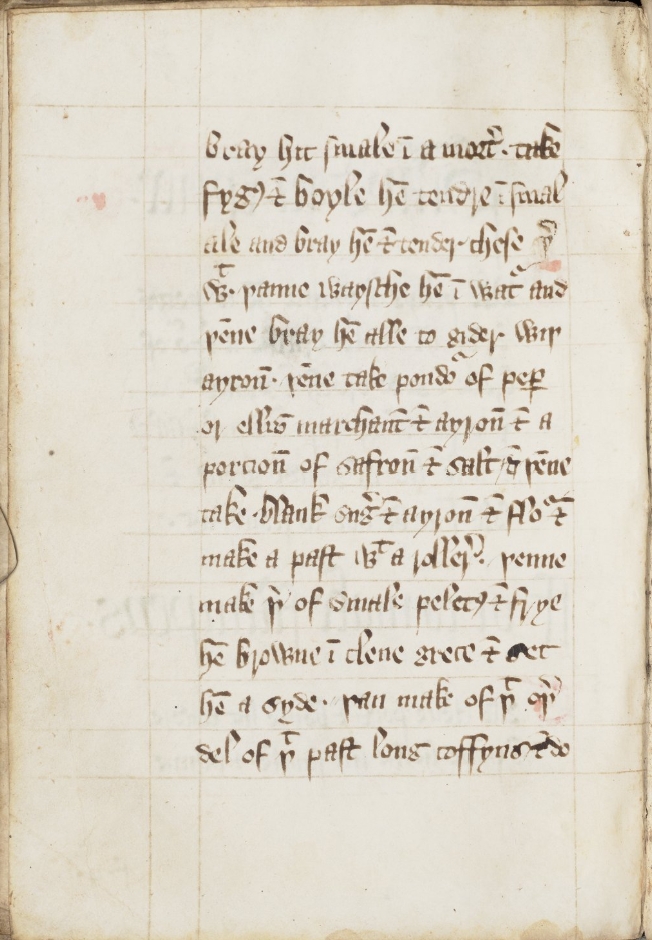 bray hit smale ī a mort̉. take
fyg℥ ⁊ boyle hē tendre ī smal
ale and bray hē ⁊ tender chese þ̉
wᵗ. þanne waysche hē ī watᵉ and
þēne bray hē alle to gider wiþ
ayron̄. þēne take pondoᵉ of peꝑ
or ellis marchant̄ ⁊ ayron̄ ⁊ a
porcion̄ of safron̄ ⁊ salt ⁊ þēne
take blank sug̉ ⁊ ayron̄ ⁊ floᵉ ⁊
make a past wᵗ a roller̉. þenne
make þ̉ of smale pelet℥ ⁊ frye
hē browne ī clene grece ⁊ set
hē a syde. þan make of þᵗ oþ̉
del of þᵗ past long coffyns ⁊ do